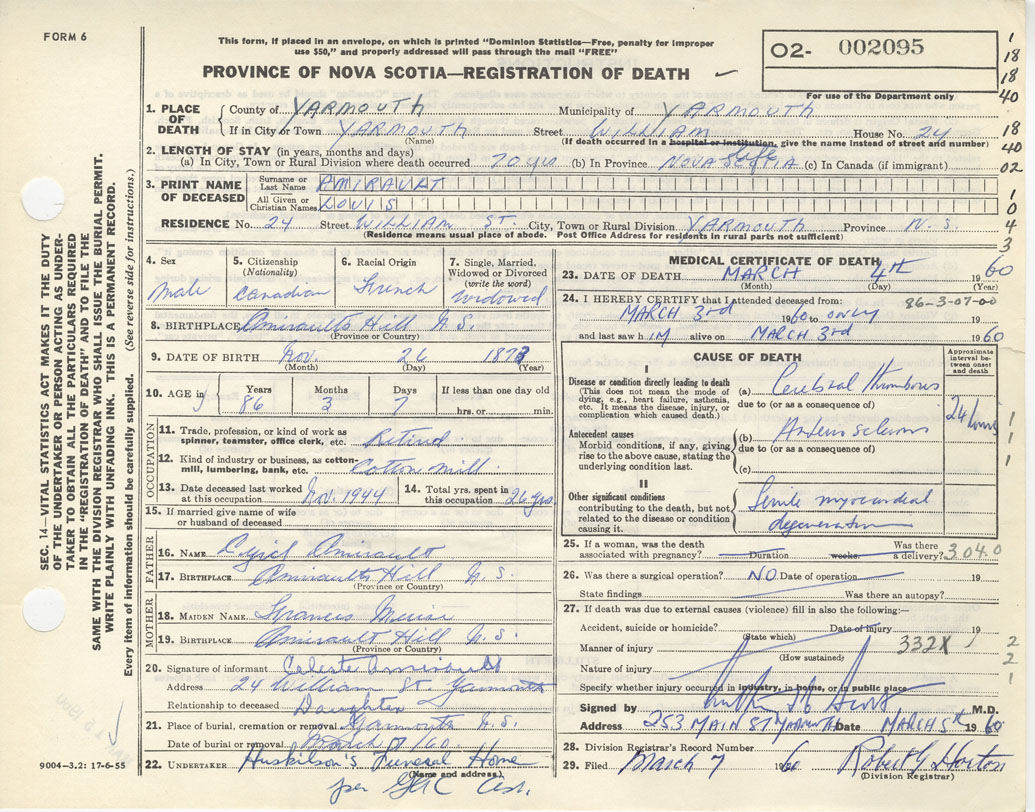 FORM 6
This form, if placed in an envelope, on which is printed "Dominion Statistics—Free, penalty for improper
use $50," and properly addressed will pass through the mail "FREE"
PROVINCE OF NOVA SCOTIA—REGISTRATION OF DEATH
O2- 002095
For use of the Department only
1. PLACE OF DEATH
County of YARMOUTH Municipality of YARMOUTH
If in City or Town YARMOUTH Street WILLIAM House No. 24
(Name) (If death occurred in a hospital or institution, give the name instead of street and number)
2. LENGTH OF STAY (in years, months and days)
(a) In City, Town or Rural Division where death occurred 70 yrs (b) In Province NOVA SCOTIA (c) In Canada (if immigrant)
3. PRINT NAME OF DECEASED
Surname or Last Name AMIRAULT
All Given or Christian Names LOUIS
RESIDENCE No. 24 Street WILLIAM ST. City, Town or Rural Division YARMOUTH Province N.S.
(Residence means usual place of abode. Post Office Address for residents in rural parts not sufficient)
4. Sex
Male
5. Citizenship
(Nationality)
Canadian
6. Racial Origin
French
7. Single, Married, Widowed or Divorced
(write the word)
Widowed
8. BIRTHPLACE Amiraults Hill N.S.
(Province or Country)
9. DATE OF BIRTH Nov. 26 1873
(Month) (Day) (Year)
10. AGE in
Years Months Days If less than one day old
86 3 7 hrs. or min.
OCCUPATION
11. Trade, profession, or kind of work as
spinner, teamster, office clerk, etc. Retired
12. Kind of industry or business, as cotton-
mill, lumbering, bank, etc. Cotton mill
13. Date deceased last worked
at this occupation Nov. 1944
14. Total yrs. spent in
this occupation 26 yrs
15. If married give name of wife
or husband of deceased
FATHER
16. NAME Amirault
17. BIRTHPLACE Amiraults Hill N.S.
(Province or Country)
MOTHER
18. MAIDEN NAME Frances Muise
19. BIRTHPLACE Amirault Hill N.S.
(Province or Country)
20. Signature of informant Celeste Amirault
Address 24 William St. Yarmouth
Relationship to deceased Daughter
21. Place of burial, cremation or removal Yarmouth N.S.
Date of burial or removal March 60
22. UNDERTAKER Huskilson's Funeral Home
(Name and address)
per
MEDICAL CERTIFICATE OF DEATH
23. DATE OF DEATH MARCH 4th 1960
(Month) (Day) (Year)
24. I HEREBY CERTIFY that I attended deceased from: 86-3-07-00
MARCH 3rd 1960 to only 19
and last saw h IM alive on MARCH 3rd 1960
CAUSE OF DEATH
Approximate interval between onset and death
I
Disease or condition directly leading to death
(This does not mean the mode of dying, e.g., heart failure, asthenia, etc. It means the disease, injury, or complication which caused death.)
(a) Cerebral thrombosis
due to (or as a consequence of)
24 hours
Antecedent causes
Morbid conditions, if any, giving rise to the above cause, stating the underlying condition last.
(b) Arteriosclerosis
due to (or as a consequence of)
(c)
II
Other significant conditions
contributing to the death, but not related to the disease or condition causing it.
Senile myocardial
degeneration
25. If a woman, was the death
associated with pregnancy? Duration weeks. Was there a delivery? 304.0
26. Was there a surgical operation? NO. Date of operation 19
State findings Was there an autopsy?
27. If death was due to external causes (violence) fill in also the following:—
Accident, suicide or homicide? Date of injury 19
(State which)
Manner of injury 332X
(How sustained)
Nature of injury
Specify whether injury occurred in industry, in home, or in public place
Signed by M.D.
Address 253 MAIN ST YARMOUTH Date MARCH 5th 1960
28. Division Registrar's Record Number
29. Filed March 7 1960 Robert G Horton
(Division Registrar)
SEC. 14—VITAL STATISTICS ACT MAKES IT THE DUTY
OF THE UNDERTAKER OR PERSON ACTING AS UNDER-
TAKER TO OBTAIN ALL THE PARTICULARS REQUIRED
IN THE "REGISTRATION OF DEATH" AND TO FILE THE
SAME WITH THE DIVISION REGISTRAR WHO SHALL ISSUE THE BURIAL PERMIT.
WRITE PLAINLY WITH UNFADING INK. THIS IS A PERMANENT RECORD.
Every item of information should be carefully supplied. (See reverse side for instructions.)
9004—3.2: 17-6-55
1
18
18
40
18
40
02
1
0
4
3
1
1
1
2
2
1